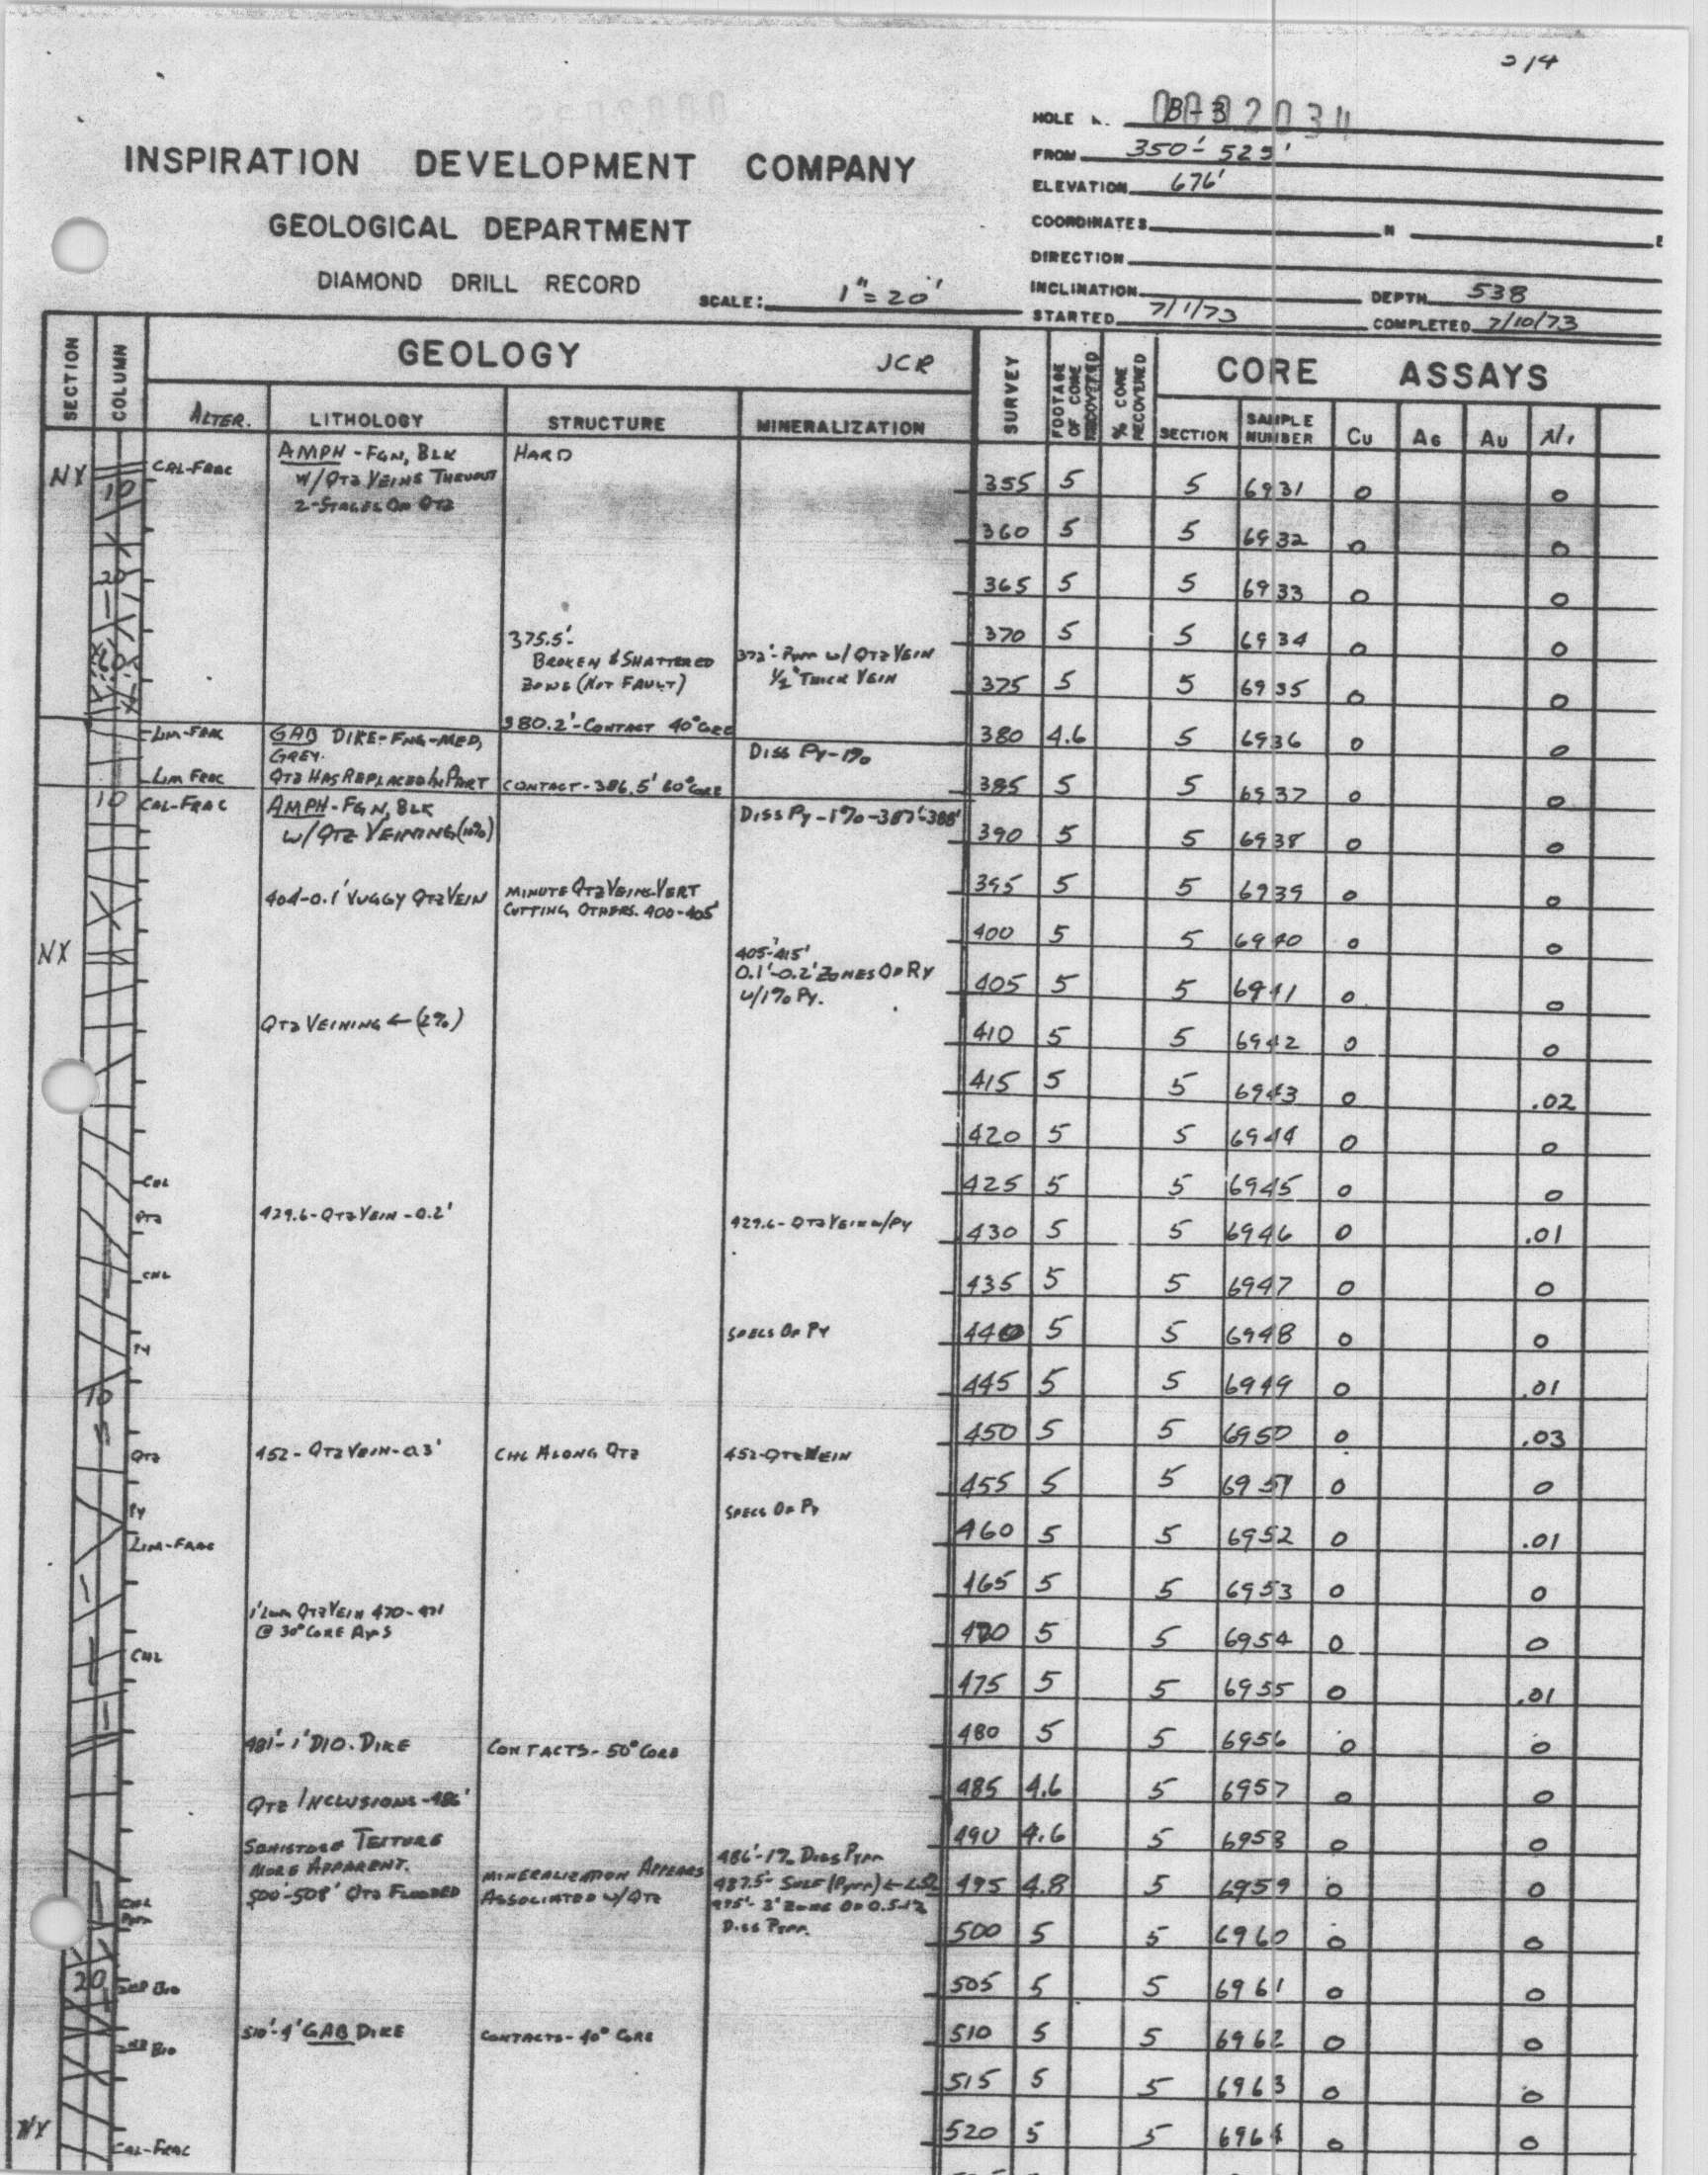 214
HOLE N. B-3
0002034
FROM 350'- 525'
ELEVATION 676'
COORDINATES N E
DIRECTION
INCLINATION DEPTH 538
STARTED 7/1/73 COMPLETED 7/10/73
INSPIRATION DEVELOPMENT COMPANY
GEOLOGICAL DEPARTMENT
DIAMOND DRILL RECORD
SCALE: 1"=20'
SECTION COLUMN GEOLOGY JCR SURVEY FOOTAGE OF CORE RECOVERED % CORE RECOVERED CORE ASSAYS
ALTER. LITHOLOGY STRUCTURE MINERALIZATION SECTION SAMPLE NUMBER Cu AG AU Ni
NX 10 CAL-FRAC
AMPH-FGN, BLK
W/QTZ VEINS THRUOUT
2-STAGES OF QTZ
HARD
20
375.5'-
BROKEN & SHATTERED
ZONE (NOT FAULT)
372'-PYRR W/QTZ VEIN
1/2" THICK VEIN
380.2'-CONTACT 40° CORE
LIM-FRAC
GAB DIKE-FNG-MED,
GREY.
QTZ HAS REPLACED IN PART
DISS PY-1%
LIM FRAC
CONTACT-386.5' 60° CORE
10 CAL-FRAC
AMPH-FGN, BLK
W/QTZ VEINING (10%)
DISS PY-1%-387'-388'
404-0.1' VUGGY QTZ VEIN
MINUTE QTZ VEINS-VERT
CUTTING OTHERS. 400-405'
NX
405'-415'
0.1'-0.2' ZONES OF PY
W/1% PY.
QTZ VEINING ← (2%)
CHL
QTZ
429.6-QTZ VEIN-0.2'
429.6-QTZ VEIN W/PY
CHL
SPECS OF PY
PY
10
QTZ
452-QTZ VEIN-0.3'
CHL ALONG QTZ
452-QTZ VEIN
PY
SPECS OF PY
LIM-FRAC
QTZ VEIN 470-471
@ 30° CORE AXIS
CHL
481'-1' DIO. DIKE
CONTACTS-50° CORE
QTZ INCLUSIONS-486'
SCHISTOSE TEXTURE
MORE APPARENT.
500'-508' QTZ FLOODED
MINERALIZATION APPEARS
ASSOCIATED W/QTZ
486'-1% DISS PYRR
487.5'- SULF (PYRR)
495'- 3' ZONE OF 0.5-1%
DISS PYRR.
CHL
PYRR
20
BIO
510'-4' GAB DIKE
CONTACTS-40° CORE
BIO
NX
CAL-FRAC
355 5 5 6931 0 0
360 5 5 6932 0 0
365 5 5 6933 0 0
370 5 5 6934 0 0
375 5 5 6935 0 0
380 4.6 5 6936 0 0
385 5 5 6937 0 0
390 5 5 6938 0 0
395 5 5 6939 0 0
400 5 5 6940 0 0
405 5 5 6941 0 0
410 5 5 6942 0 0
415 5 5 6943 0 .02
420 5 5 6944 0 0
425 5 5 6945 0 0
430 5 5 6946 0 .01
435 5 5 6947 0 0
440 5 5 6948 0 0
445 5 5 6949 0 .01
450 5 5 6950 0 .03
455 5 5 6951 0 0
460 5 5 6952 0 .01
465 5 5 6953 0 0
470 5 5 6954 0 0
475 5 5 6955 0 .01
480 5 5 6956 0 0
485 4.6 5 6957 0 0
490 4.6 5 6958 0 0
495 4.8 5 6959 0 0
500 5 5 6960 0 0
505 5 5 6961 0 0
510 5 5 6962 0 0
515 5 5 6963 0 0
520 5 5 6964 0 0